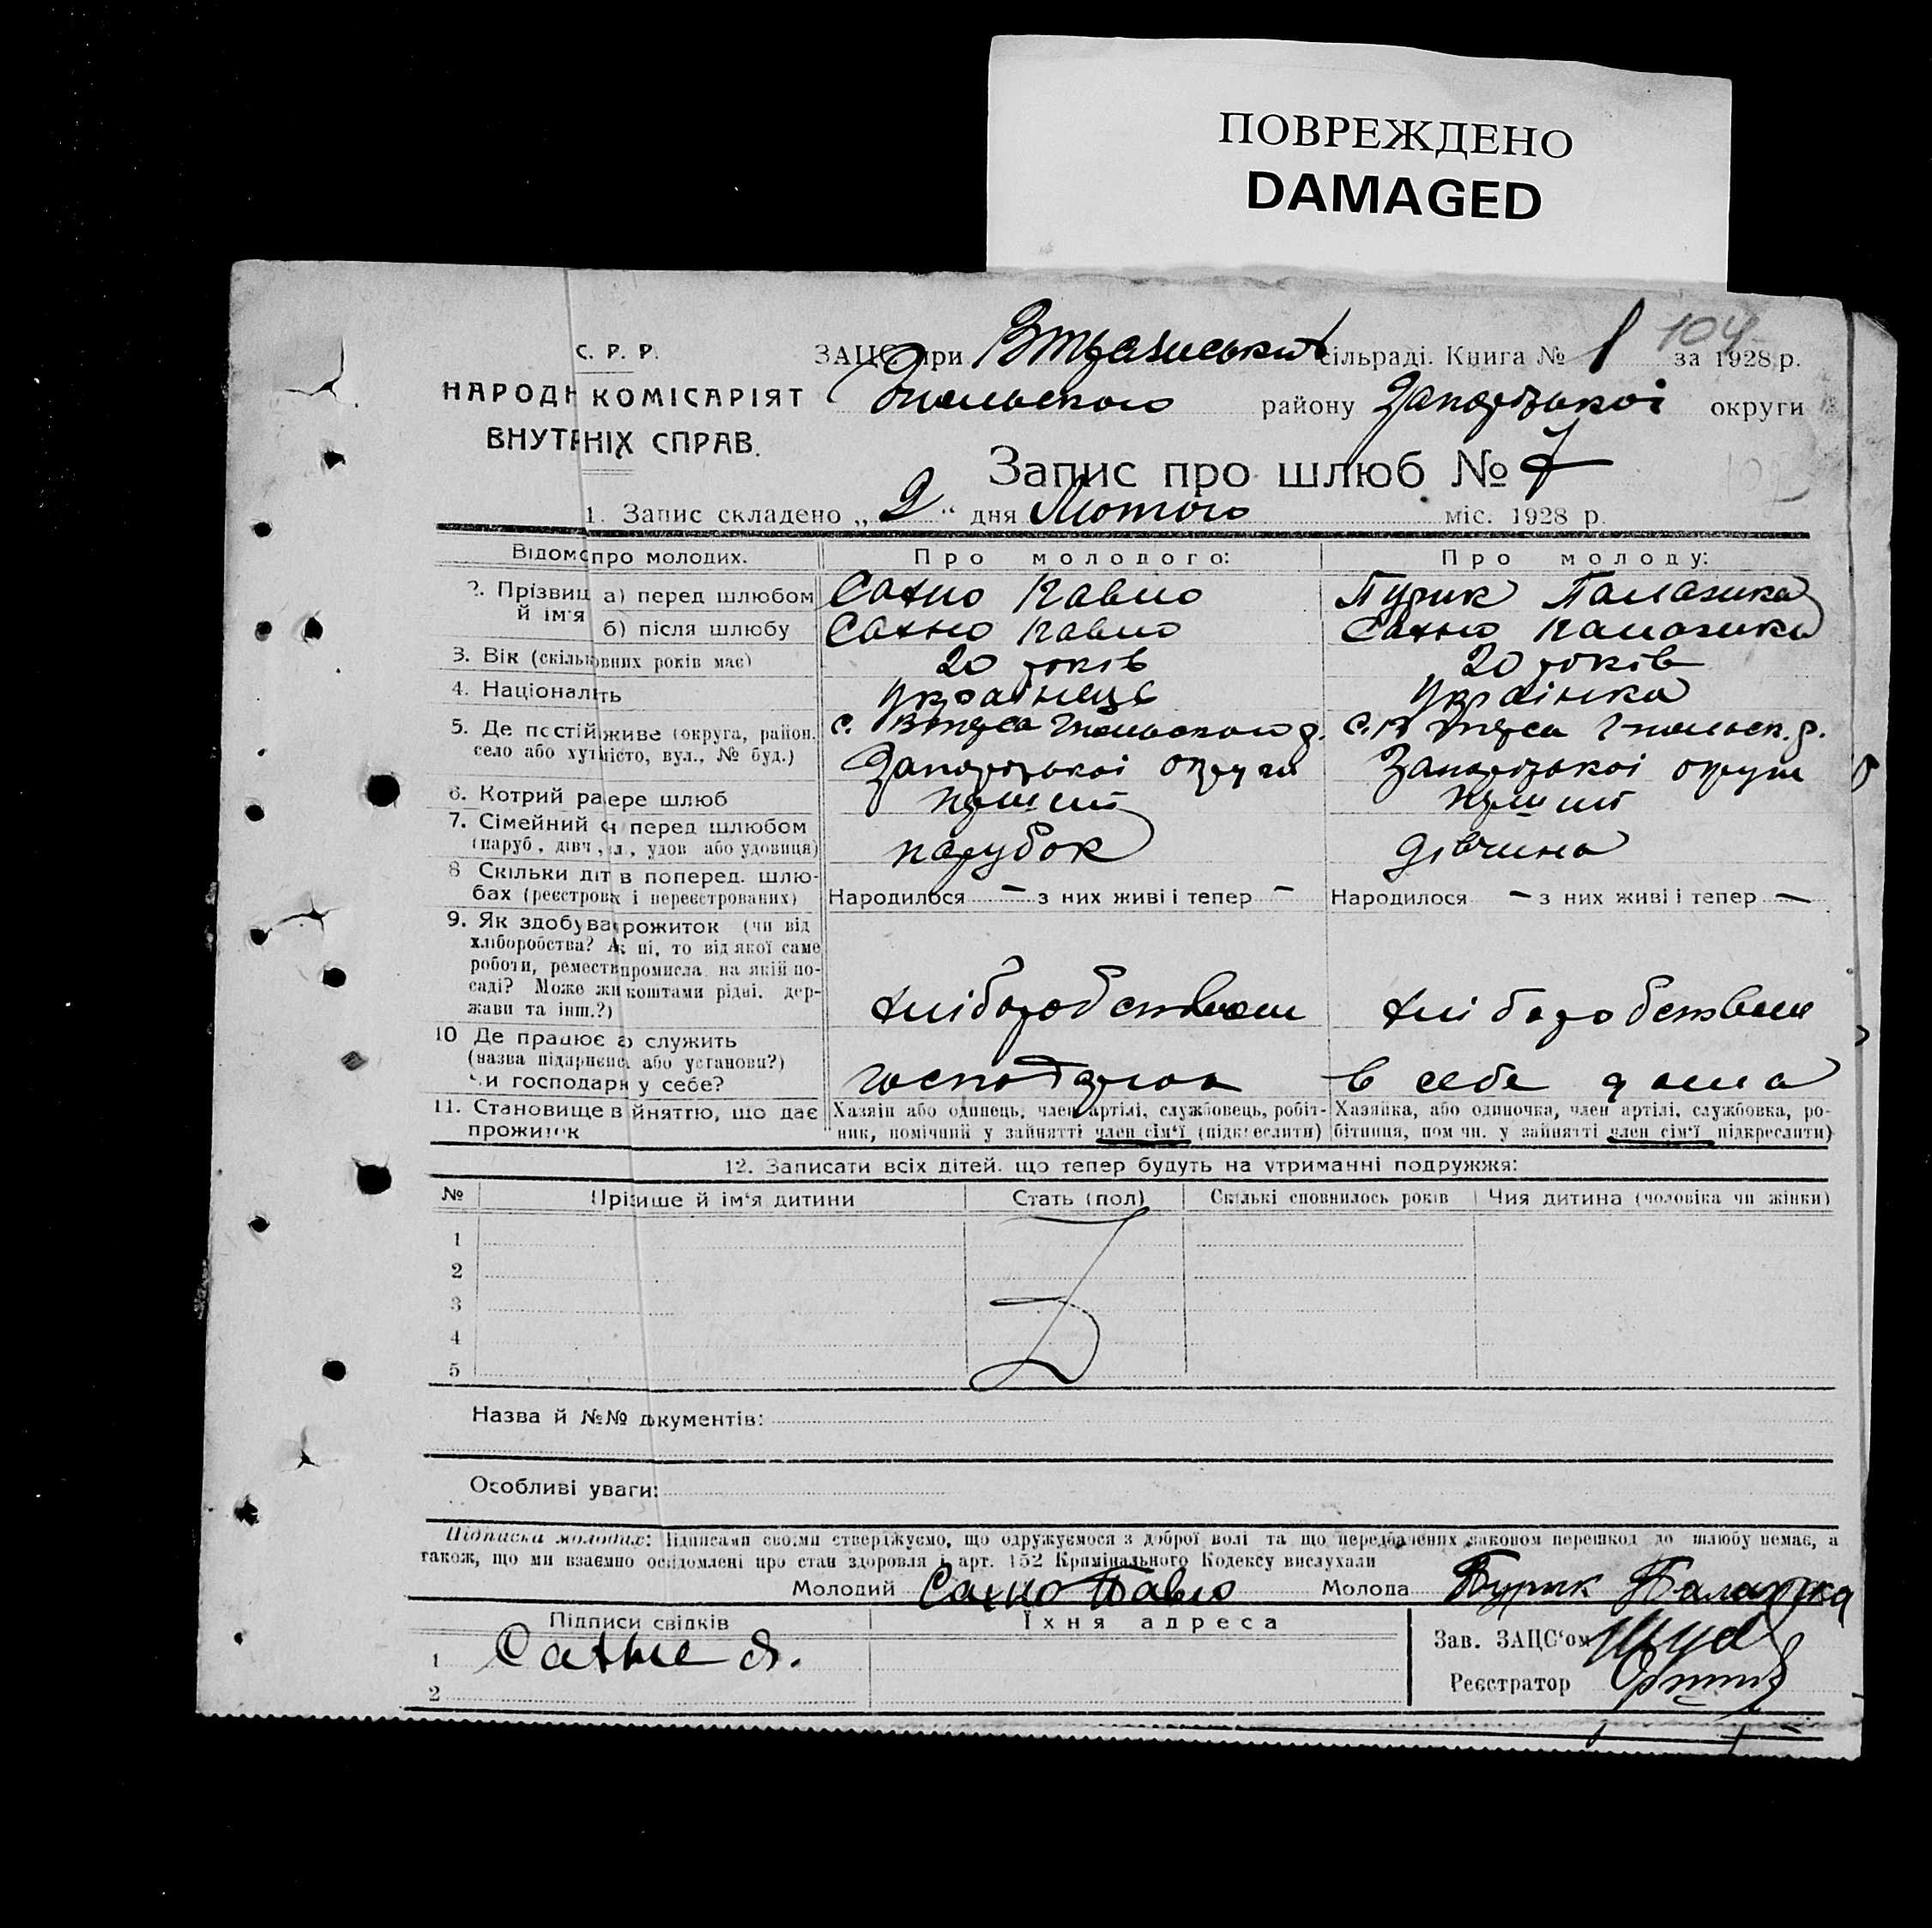 ПОВРЕЖДЕНО
DAMAGED
104
С. Р. Р.
НАРОДН КОМІСАРІЯТ
ВНУТРНІХ СПРАВ.
ЗАЦС при сільраді. Книга № 1 за 1928 р.
району Запорізької округи
Запис про шлюб № 7
1. Запис складено „ 2 “ дня Лютого міс. 1928 р.
Відомо про молодих. Про молодого: Про молоду:
2. Прізвищ й ім'я а) перед шлюбом Сахно Павло Пурик Палажка
б) після шлюбу Сахно Павло Сахно Палажка
3. Вік (скільк овних років має) 20 років 20 років
4. Національ ть українець українка
5. Де постій живе (округа, район, с. р. с. р.
село або хут місто, вул., № буд.) Запорізької округи Запорізької округи
6. Котрий ра бере шлюб перший перший
7. Сімейний с перед шлюбом парубок дівчина
(паруб, дівч, л, удов або удовиця)
8 Скільки діт в поперед. шлю-
бах (реєстрова х і нереєстрованих) Народилося — з них живі і тепер — Народилося — з них живі і тепер —
9. Як здобува прожиток (чи від
хліборобства? Ак ні, то від якої саме
роботи, реместв промисла на якій по-
саді? Може жи коштами рідні, дер-
жави та інш.?) хліборобством хліборобством
10 Де працює або служить
(назва підприємс або установи?)
Чи господарю у себе? в себе дома
11. Становище в йняттю, що дає прожиток
Хазяїн або одинець, член артілі, службовець, робіт-
ник, помічний у зайнятті член сім'ї (підкреслити)
Хазяйка, або одиночка, член артілі, службовка, ро-
бітниця, пом чн. у зайнятті член сім'ї підкреслити)
12. Записати всіх дітей, що тепер будуть на утриманні подружжя:
№ Прізвище й ім'я дитини Стать (пол) Скількі сповнилось років Чия дитина (чоловіка чи жінки)
1
2
3
4
5
Назва й №№ документів:
Особливі уваги:
Підписка молодих: Підписами своїми стверджуємо, що одружуємося з доброї волі та що передбачених законом перешкод до шлюбу немає, а
також, що ми взаємно освідомлені про стан здоровля і арт. 152 Кримінального Кодексу вислухали
Молодий Сахно Павло Молода Пурик Палажка
Підписи свідків Їхня адреса
1 Сахно
2
Зав. ЗАЦС'ом
Реєстратор